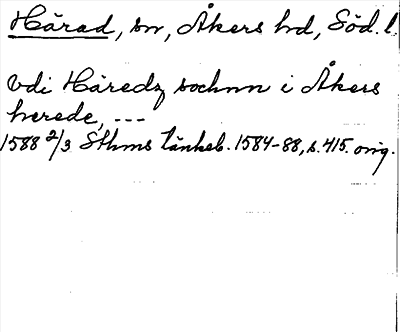 Härad, sn, Åkers hd, Söd. l.
vdi Häredz sochnn i Åkers
herede, ---
1588 2/3 Sthms tänkeb. 1584-88, s. 415. orig.